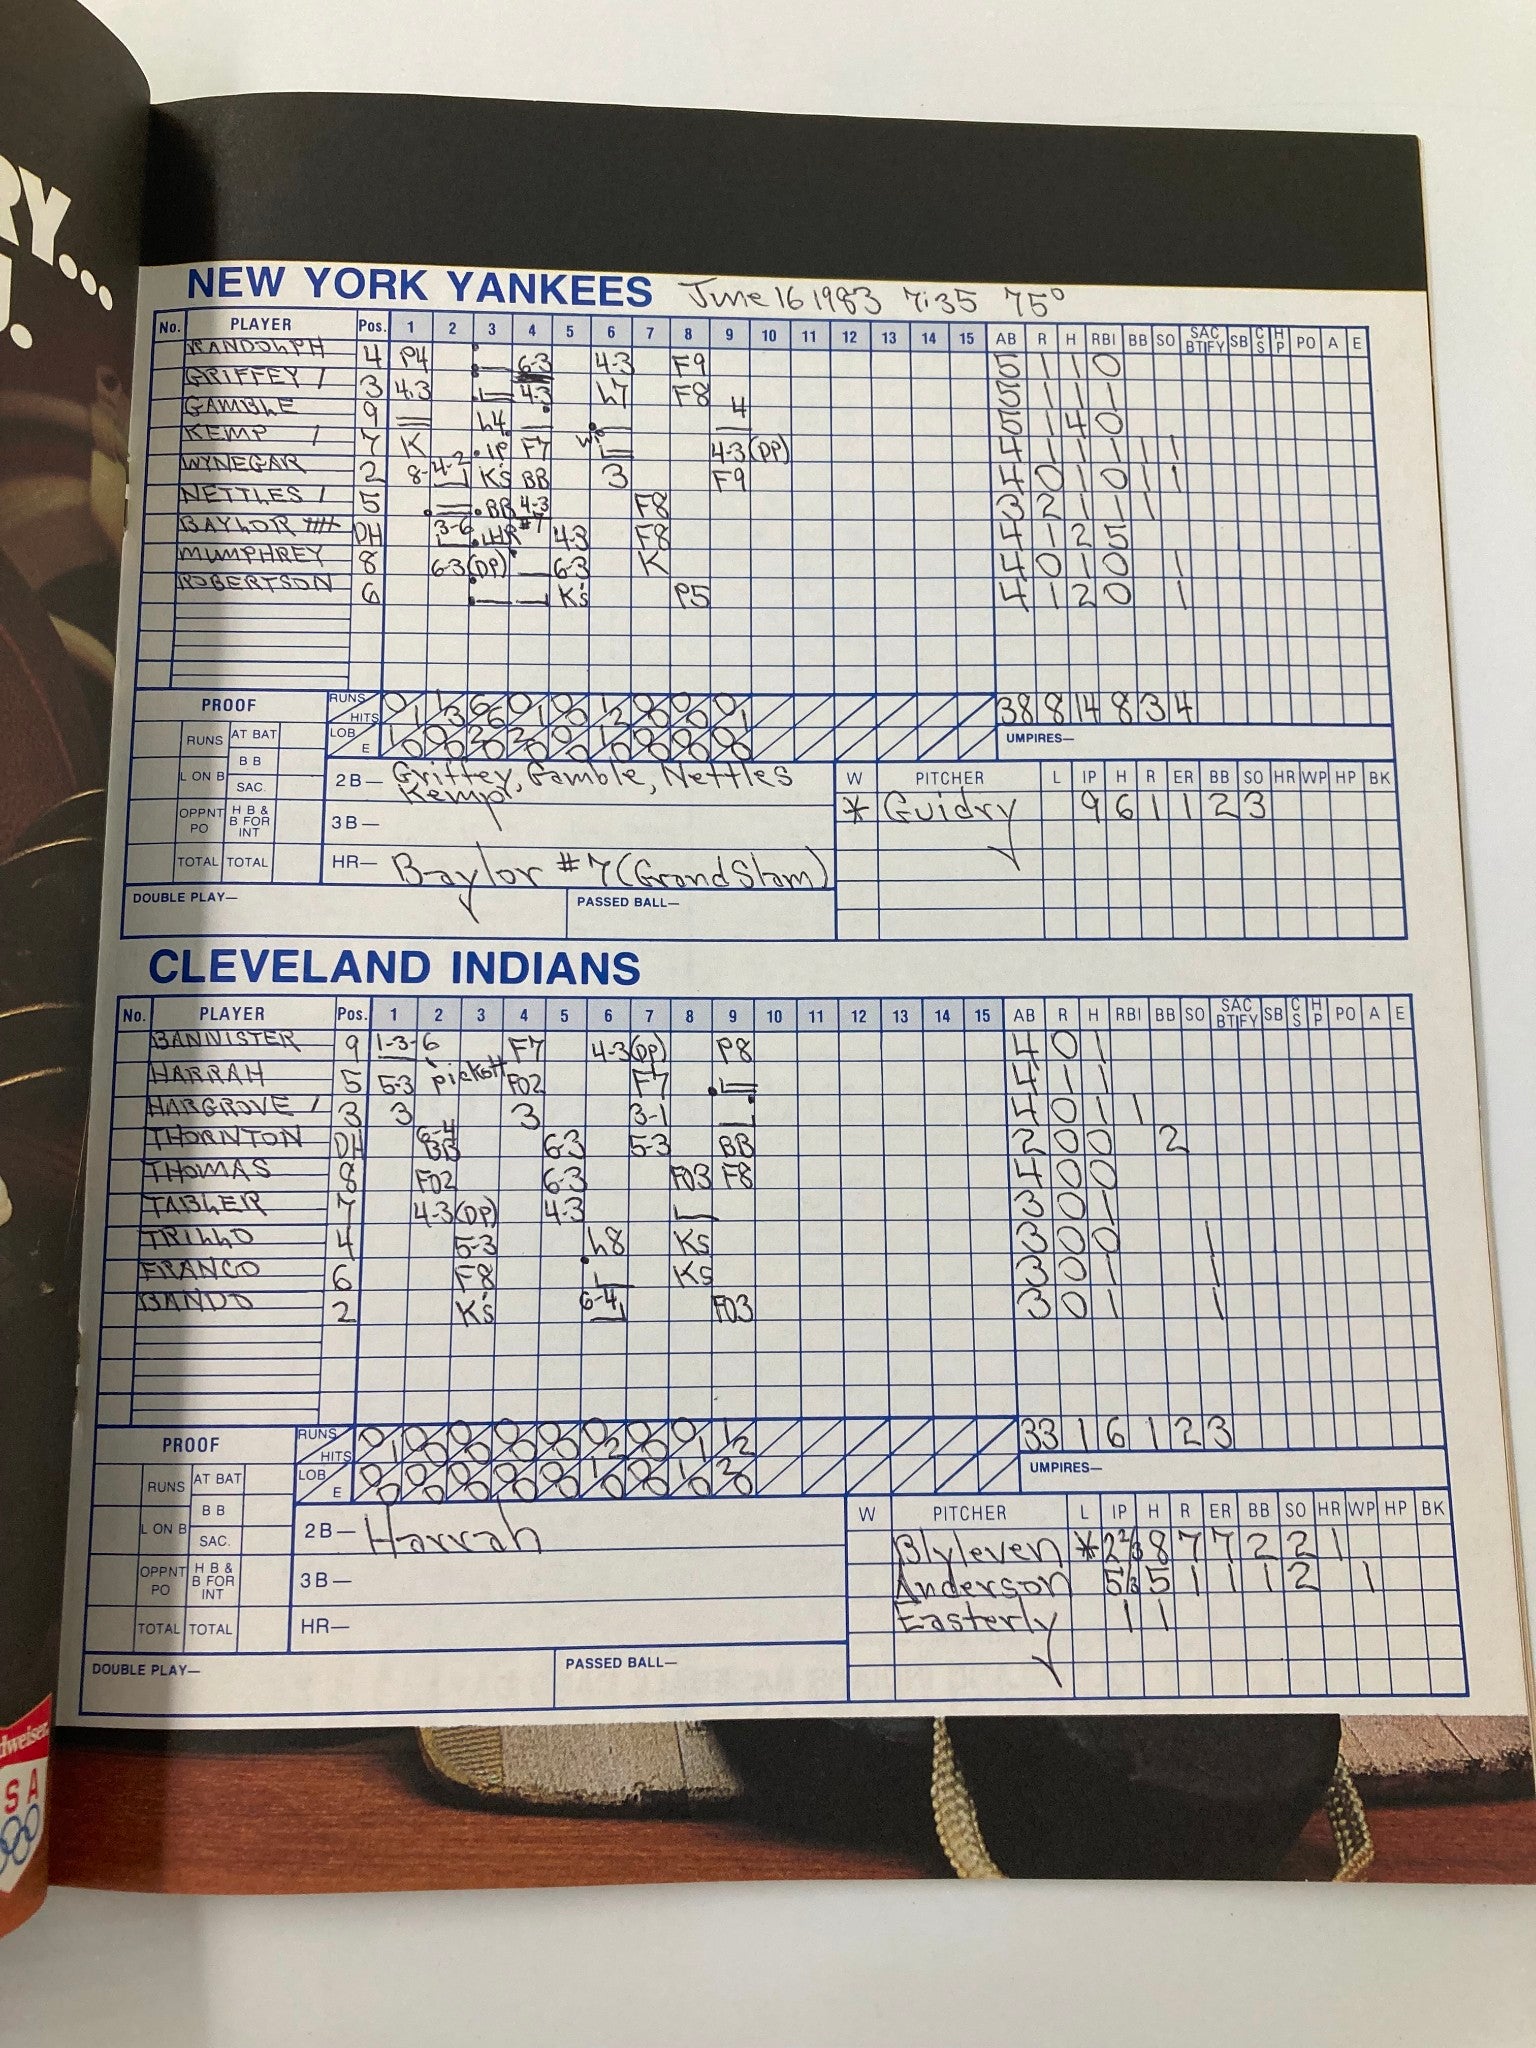 RY...
!.
NEW YORK YANKEES June 16 1983 7:35 75°
No. PLAYER Pos. 1 2 3 4 5 6 7 8 9 10 11 12 13 14 15 AB R H RBI BB SO SAC BT FY SB CS HP PO A E
RANDOLPH 4 P4 6-3 4-3 F9 5 1 1 0
GRIFFEY 1 3 4-3 4-3 L7 F8 5 1 1 1
GAMBLE 9 L4 4 5 1 4 0
KEMP 1 7 K IP F7 WP 4-3(DP) 4 1 1 1 1 1
WYNEGAR 2 8-4-2 Ks BB 3 F9 4 0 1 0 1 1
NETTLES 1 5 BB 4-3 F8 3 2 1 1 1
BAYLOR DH 3-6 HR #7 4-3 F8 4 1 2 5
MUMPHREY 8 6-3(DP) 6-3 K 4 0 1 0 1
ROBERTSON 6 Ks P5 4 1 2 0 1
PROOF RUNS HITS 0/1 1/3 6/6 0/1 0/0 1/2 0/0 0/0 0/1 38 8 14 8 3 4
LOB E 1/0 0/0 2/0 2/0 0/0 1/0 0/0 0/0 0/0 UMPIRES—
RUNS AT BAT
L ON B B B SAC.
OPPNT PO H B & B FOR INT
TOTAL TOTAL
2B— Griffey, Gamble, Nettles
Kemp
3B—
HR— Baylor #7 (Grand Slam)
DOUBLE PLAY— PASSED BALL—
W PITCHER L IP H R ER BB SO HR WP HP BK
* Guidry 9 6 1 1 2 3
CLEVELAND INDIANS
No. PLAYER Pos. 1 2 3 4 5 6 7 8 9 10 11 12 13 14 15 AB R H RBI BB SO SAC BT FY SB CS HP PO A E
BANNISTER 9 1-3-6 F7 4-3(DP) P8 4 0 1
HARRAH 5 5-3 pickoff FO2 F7 4 1 1
HARGROVE 1 3 3 3 3-1 4 0 1 1
THORNTON DH 6-4 BB 6-3 5-3 BB 2 0 0 2
THOMAS 8 FO2 6-3 FO3 F8 4 0 0
TABLER 7 4-3(DP) 4-3 3 0 1
TRILLO 4 5-3 L8 Ks 3 0 0 1
FRANCO 6 F8 Ks 3 0 1 1
BANDO 2 Ks 6-4 FO3 3 0 1 1
PROOF RUNS HITS 0/1 0/0 0/0 0/0 0/0 0/2 0/0 0/1 1/2 33 1 6 1 2 3
LOB E 0/0 0/0 0/0 0/0 0/0 1/0 0/0 1/0 2/0 UMPIRES—
RUNS AT BAT
L ON B B B SAC.
OPPNT PO H B & B FOR INT
TOTAL TOTAL
2B— Harrah
3B—
HR—
DOUBLE PLAY— PASSED BALL—
W PITCHER L IP H R ER BB SO HR WP HP BK
Blyleven * 2 2/3 8 7 7 2 2 1
Anderson 5 1/3 5 1 1 1 2 1
Easterly 1 1
dweiser
SA